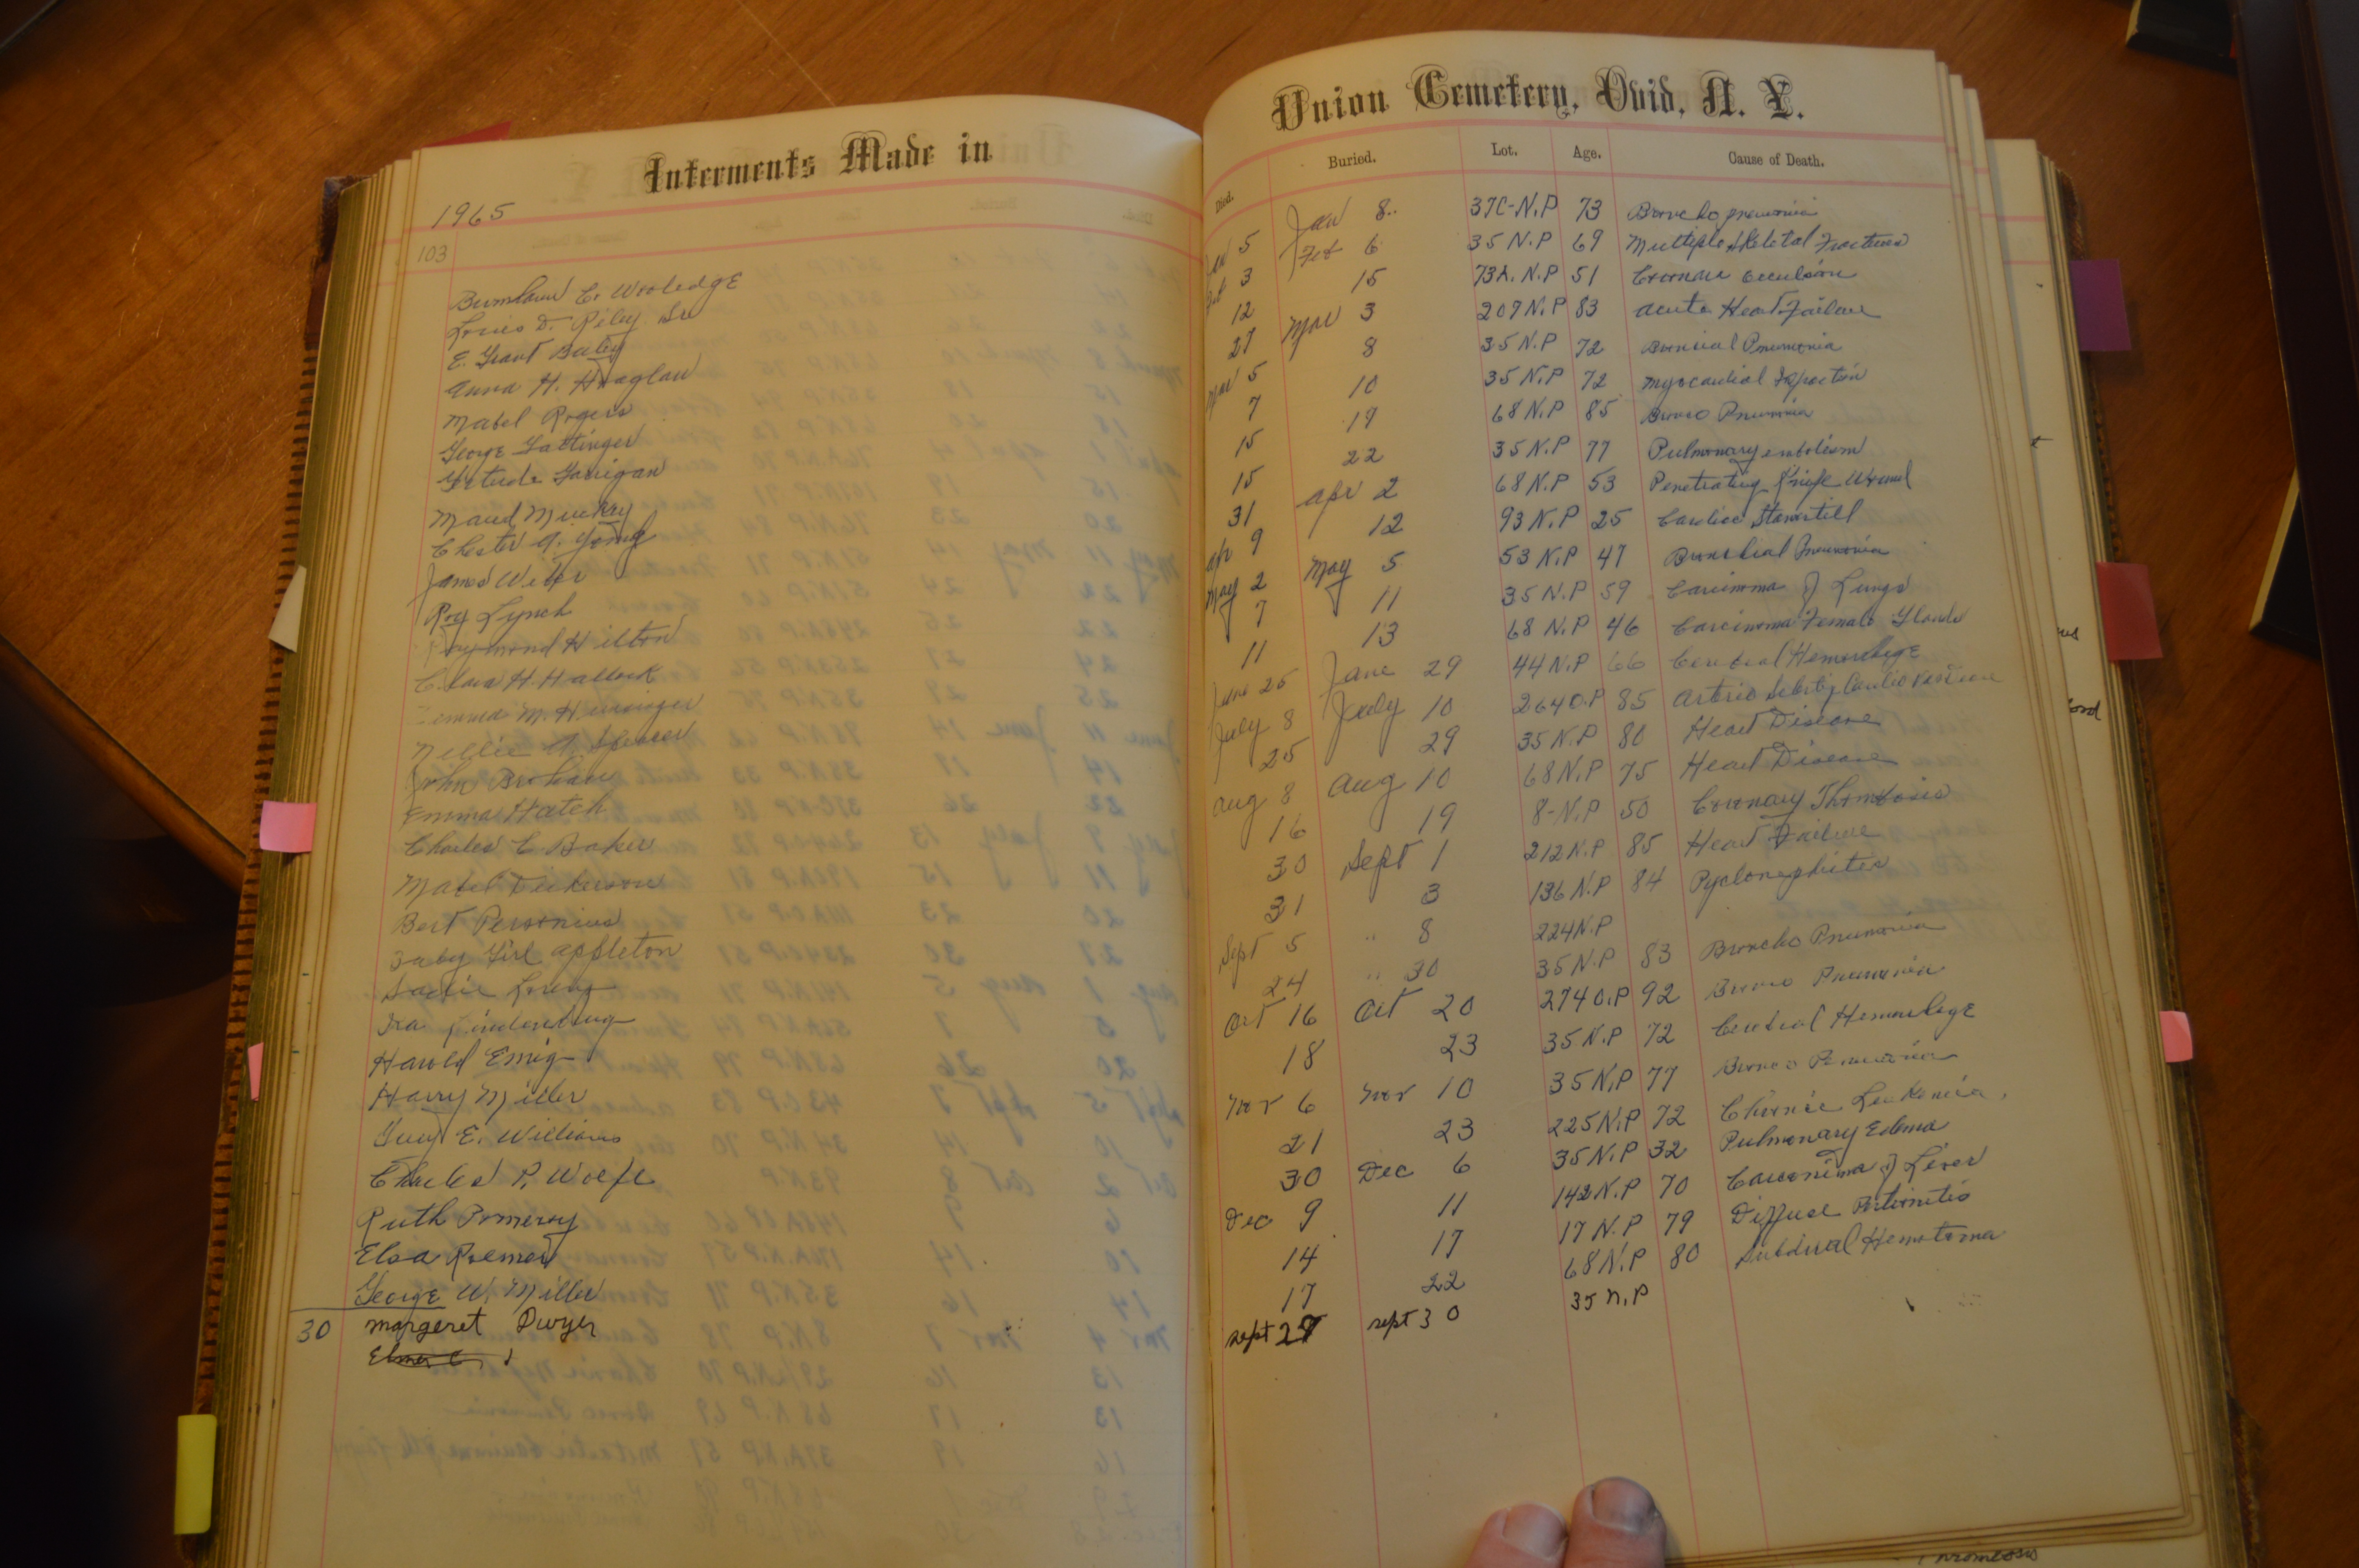 Interments Made in
1965
103
Burnham C. Wooledge
Louis D. Riley Sr
E. Grant Baley
Anna H. Hoaglan
Mabel Rogers
George Lattinger
Gertude Garrigan
Maud Muckey
Chester A. Young
James Weber
Roy Lynch
Raymond Hilton
Clara H. Hallock
M.
Nellie A Spencer
John
Emma Hatch
Charles C Baker
Mabel Dickerson
Bert Personius
Baby Girl Appleton
Sadie
Ira
Harold Emig
Harry Miller
Guy E. Williams
Charles P. Wolfe
Ruth Pomeroy
Elsa Roemer
George W. Miller
30 Margeret Dwyer
Elmer C.
Union Cemetery, Ovid, N. Y.
Died. Buried. Lot. Age. Cause of Death.
Jan 5 Jan 8 37C-N.P 73 Broncho pneumonia
Feb 3 Feb 6 35 N.P 69 Multiple Skeletal Fractures
12 15 73A. N.P 51 Coronary Occulsion
27 Mar 3 207 N.P 83 Acute Heart Failure
Mar 5 8 35 N.P 72 Broncial Pneumonia
7 10 35 N.P 72 Myocardial Infarction
15 19 68 N.P 85 Bronco Pneumonia
15 22 35 N.P 77 Pulmonary embolism
31 Apr 2 68 N.P 53 Penetrating Knife Wound
Apr 9 12 93 N.P 25 Cardiac Standstill
May 2 May 5 53 N.P 47 Bronchial Pneumonia
7 11 35 N.P 59 Carcinoma of Lungs
11 13 68 N.P 46 Carcinoma Female Glands
June 25 June 29 44 N.P 66 Cerebral Hemorrhage
July 8 July 10 264 O.P 85 Arterio
25 29 35 N.P 80 Heart Disease
Aug 8 Aug 10 68 N.P 75 Heart Disease
16 19 8-N.P 50 Coronary Thrombosis
30 Sept 1 212 N.P 85 Heart Failure
31 3 136 N.P 84 Pyelonephritis
Sept 5 " 8 224 N.P
24 " 30 35 N.P 83 Broncho Pneumonia
Oct 16 Oct 20 274 O.P 92 Bronco Pneumonia
18 23 35 N.P 72 Cerebral Hemorrhage
Nov 6 Nov 10 35 N.P 77 Bronco Pneumonia
21 23 225 N.P 72 Chronic Leukemia
30 Dec 6 35 N.P 32 Pulmonary Edema
Dec 9 11 142 N.P 70 Carconima of Liver
14 17 17 N.P 79 Diffuse Peritonitis
17 22 68 N.P 80 Subdural Hematoma
sept 27 sept 30 35 N.P